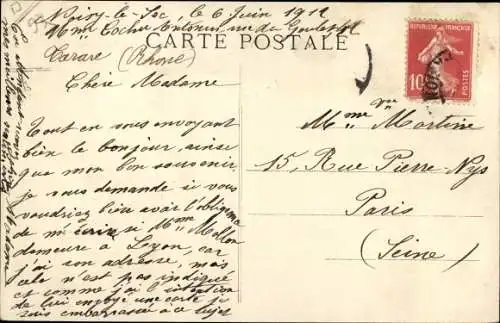 Noiry-le-Sec, le 6 Juin 1912
Mme Cocher Antonin, rue de
Tarare (Rhône)
CARTE POSTALE
Chère Madame
Tout en vous envoyant
bien le bonjour, ainsi
que mon bon souvenir,
je vous demande si vous
voudriez bien avoir l'obligence
de m'écrire si Mme Mollon
demeure à Lyon, car
j'ai son adresse, mais
cela n'est pas indiqué
et comme j'ai l'intention
de lui envoyé une carte je
suis embarrassée à ce sujet
En attendant
mes meilleurs
REPUBLIQUE FRANÇAISE
10
POSTES
Mme Vve Martine
15, Rue Pierre-Nys
Paris
(Seine)